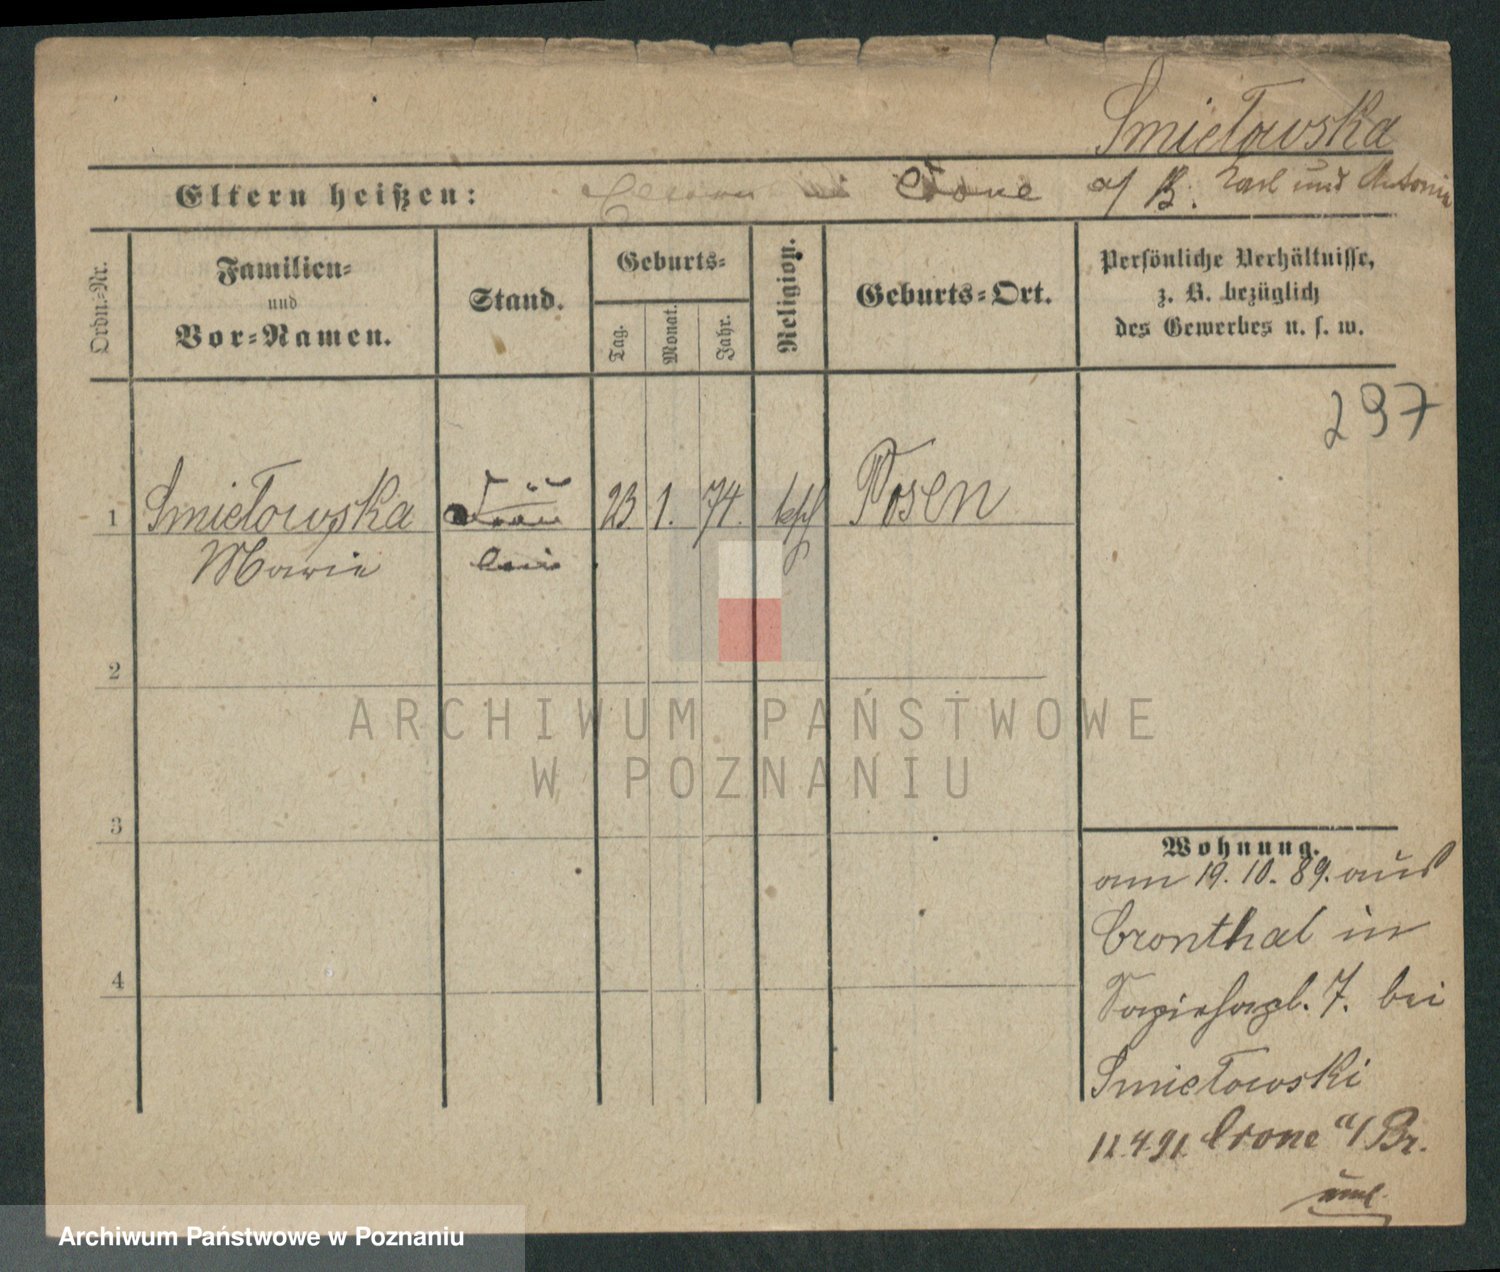 Smiełowska
Eltern heißen: Crone a/ B. Karl und Antonie
Ordn=Nr.
Familien=
und
Vor=Namen.
Stand.
Geburts=
Tag.
Monat.
Jahr.
Religion.
Geburts=Ort.
Persönliche Verhältnisse,
z. B. bezüglich
des Gewerbes u. s. w.
297
1 Smiełowska 23 1. 74. kath Posen
Marie
2
3
4
Wohnung.
am 19. 10. 89. aus
Cronthal in
Sapiehapl. 7. bei
Smiełowski
12.4.91. Crone a/ Br.
ARCHIWUM PAŃSTWOWE
W POZNANIU
Archiwum Państwowe w Poznaniu